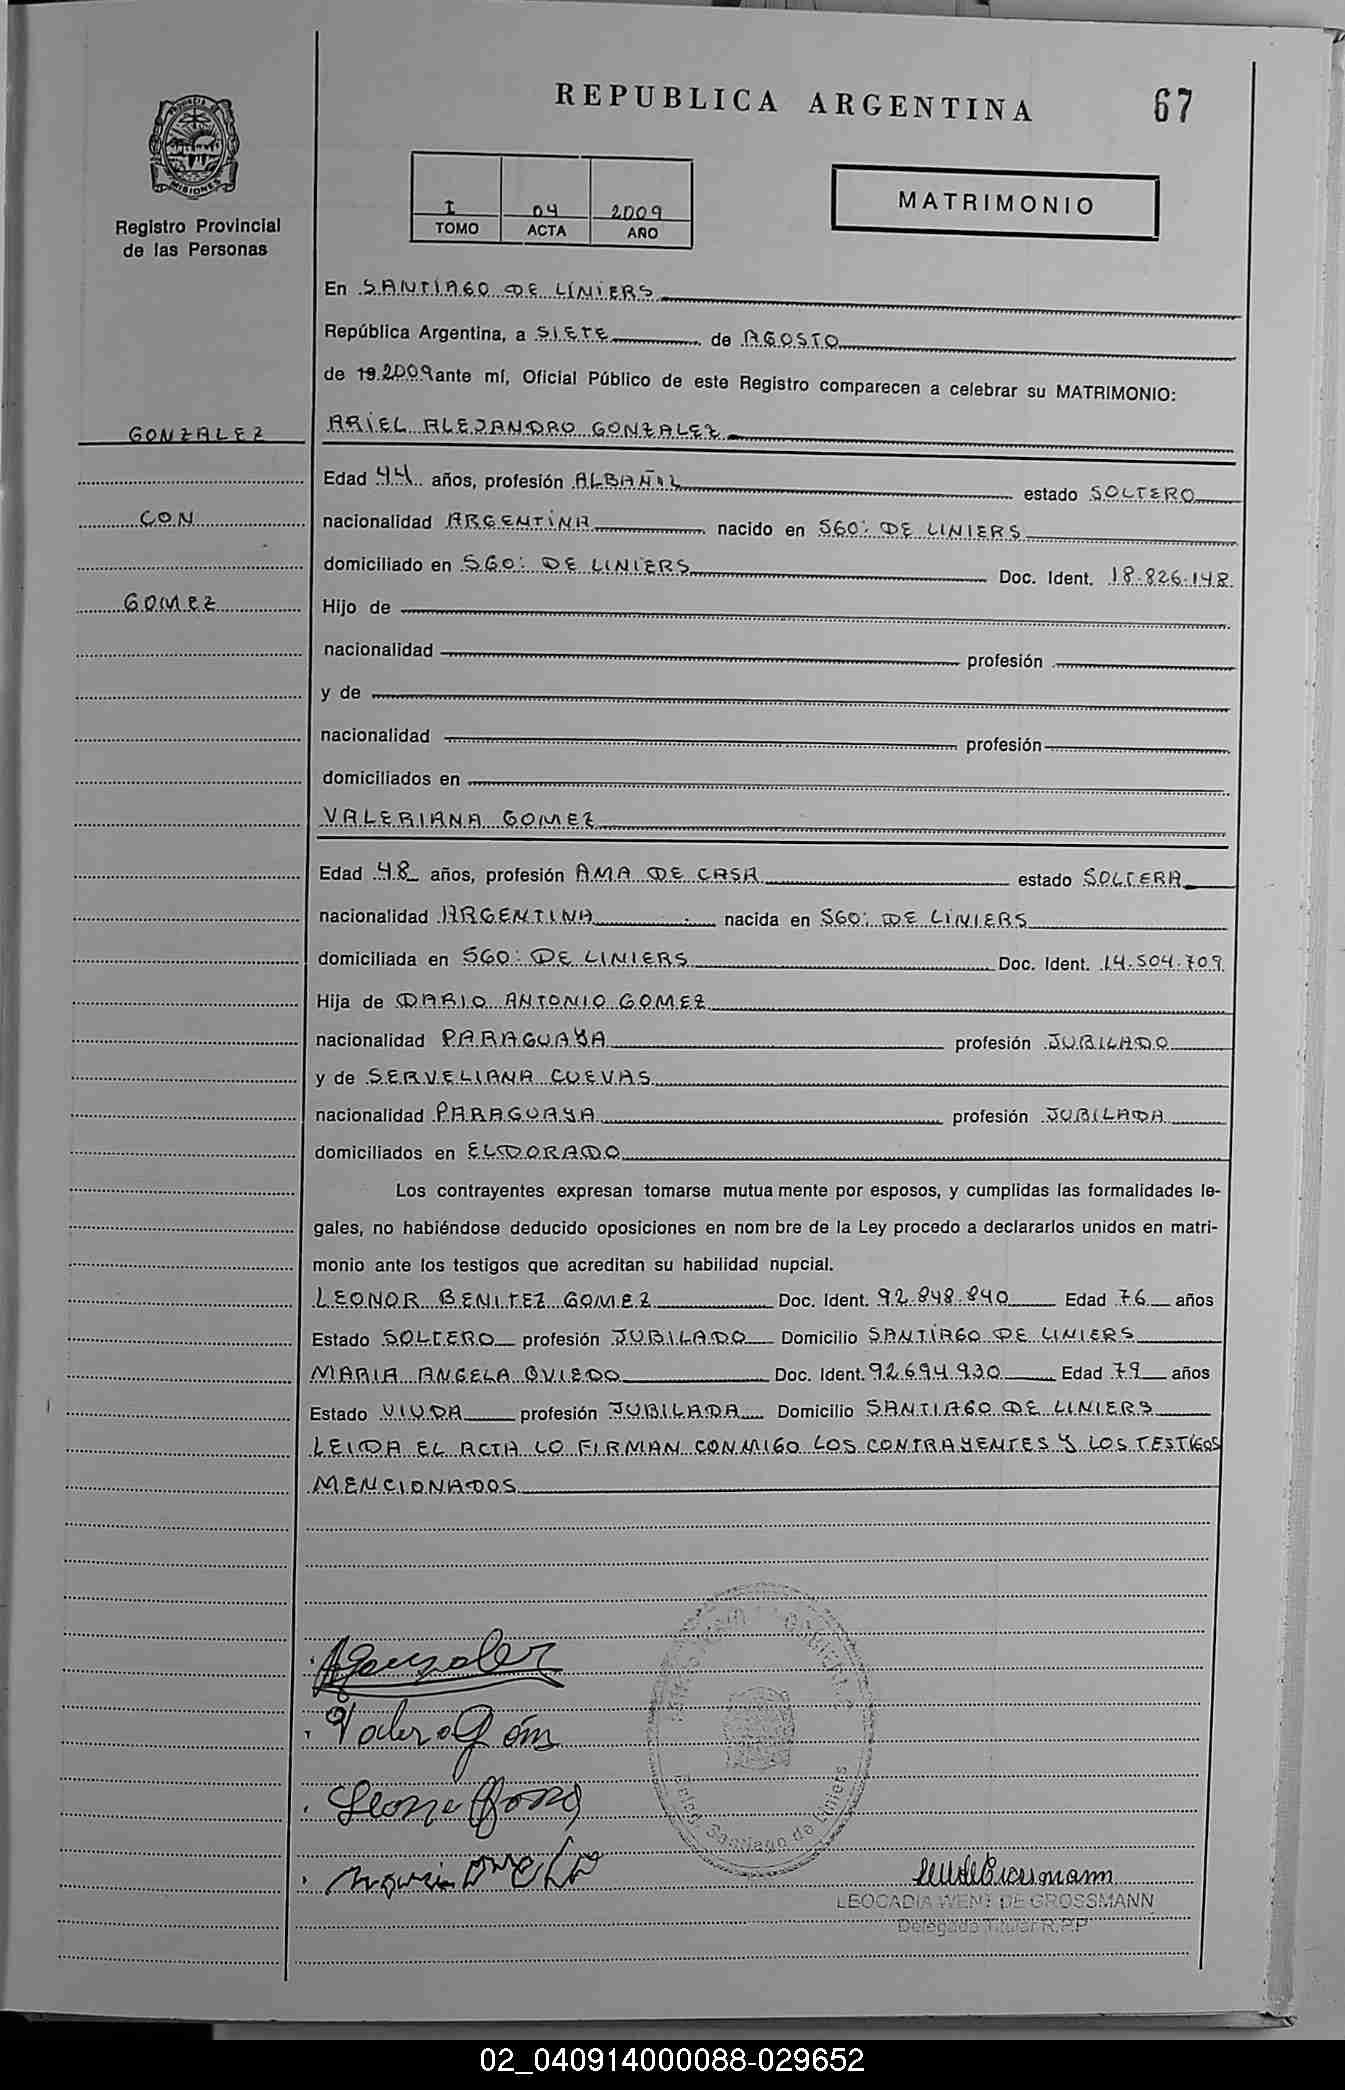 REPUBLICA ARGENTINA
67
PROVINCIA DE
MISIONES
Registro Provincial
de las Personas
I 04 2009
TOMO ACTA AÑO
MATRIMONIO
En SANTIAGO DE LINIERS
República Argentina, a SIETE de AGOSTO
de 19 2009 ante mí, Oficial Público de este Registro comparecen a celebrar su MATRIMONIO:
GONZALEZ
CON
GOMEZ
ARIEL ALEJANDRO GONZALEZ
Edad 44 años, profesión ALBAÑIL estado SOLTERO
nacionalidad ARGENTINA nacido en SGO: DE LINIERS
domiciliado en SGO: DE LINIERS Doc. Ident. 18.826.148
Hijo de
nacionalidad profesión
y de
nacionalidad profesión
domiciliados en
VALERIANA GOMEZ
Edad 48 años, profesión AMA DE CASA estado SOLTERA
nacionalidad ARGENTINA nacida en SGO: DE LINIERS
domiciliada en SGO: DE LINIERS Doc. Ident. 14.504.709
Hija de DARIO ANTONIO GOMEZ
nacionalidad PARAGUAYA profesión JUBILADO
y de SERVELIANA CUEVAS
nacionalidad PARAGUAYA profesión JUBILADA
domiciliados en ELDORADO
Los contrayentes expresan tomarse mutua mente por esposos, y cumplidas las formalidades le-
gales, no habiéndose deducido oposiciones en nom bre de la Ley procedo a declararlos unidos en matri-
monio ante los testigos que acreditan su habilidad nupcial.
LEONOR BENITEZ GOMEZ Doc. Ident. 92.848.840 Edad 76 años
Estado SOLTERO profesión JUBILADO Domicilio SANTIAGO DE LINIERS
MARIA ANGELA OVIEDO Doc. Ident. 92694930 Edad 79 años
Estado VIUDA profesión JUBILADA Domicilio SANTIAGO DE LINIERS
LEIDA EL ACTA LO FIRMAN CONMIGO LOS CONTRAYENTES Y LOS TESTIGOS
MENCIONADOS
AGonzalez
Deleg. Santiago de Liniers
LEOCADIA WENT DE GROSSMANN
Delegada Titular R.P.P
02_040914000088-029652